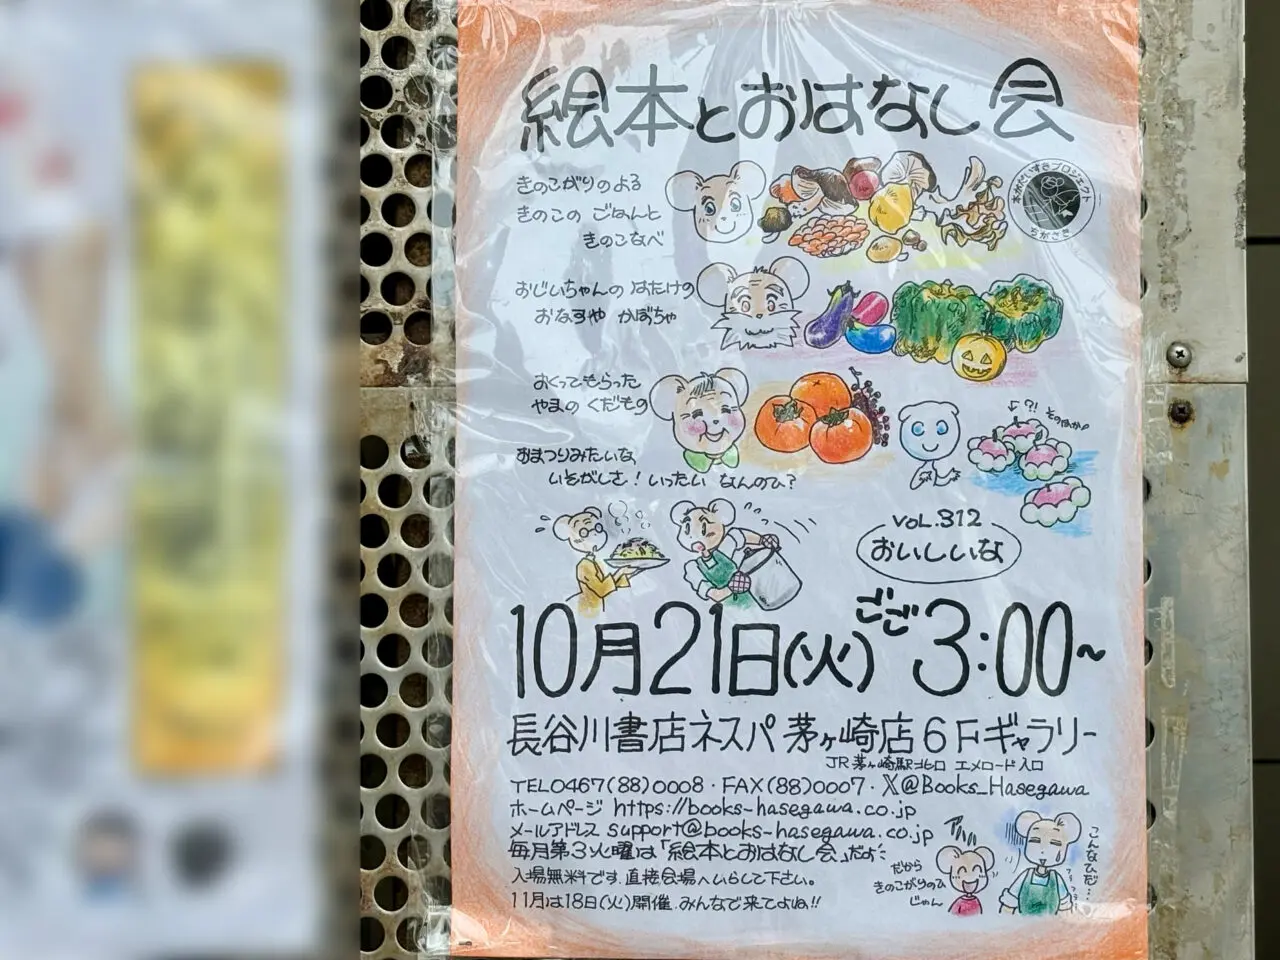 絵本とおはなし会
きのこがりのよる
きのこの ごはんと
きのこなべ
本がだいすきプロジェクト
ちがさき
おじいちゃんの はたけの
おなすや かぼちゃ
おくってもらった
やまの くだもの
?!
そのほか!
おまつりみたいな
いそがしさ! いったい なんのひ?
VOL.312
おいしいな
10月21日(火)ごご3:00~
長谷川書店ネスパ茅ヶ崎店6Fギャラリー
JR茅ヶ崎駅北口 エメロード入口
TEL0467(88)0008・FAX(88)0007・X@Books_Hasegawa
ホームページ https://books-hasegawa.co.jp
メールアドレス support@books-hasegawa.co.jp
毎月第3火曜は「絵本とおはなし会」だよ
入場無料です.直接会場へいらして下さい。
11月は18日(火)開催.みんなで来てよね!!
アハハ
だから
きのこがりのひ
じゃん
こんなひだ…